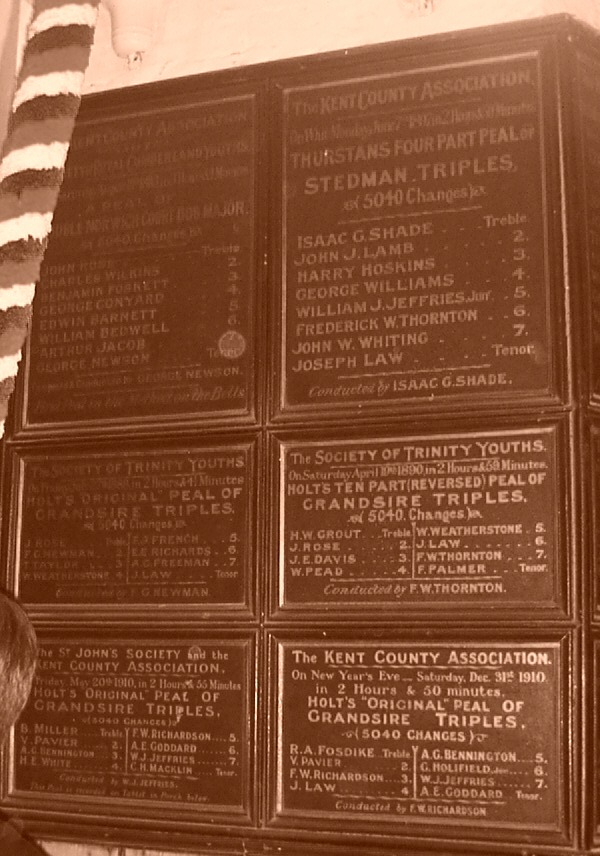 KENT COUNTY ASSOCIATION
ROYAL CUMBERLAND YOUTHS
A PEAL OF
NORWICH COURT BOB MAJOR,
(5040 Changes)
Treble.
JOHN ROSE
CHARLES WILKINS 2.
BENJAMIN FOSKETT 3.
GEORGE CONYARD 4.
EDWIN BARNETT 5.
WILLIAM BEDWELL 6.
ARTHUR JACOB
GEORGE NEWSON Tenor.
GEORGE NEWSON.
on the Bells
The KENT COUNTY ASSOCIATION,
On Whit Monday, June in 2 Hours & Minutes,
THURSTANS FOUR PART PEAL OF
STEDMAN TRIPLES,
(5040 Changes)
ISAAC G. SHADE Treble.
JOHN J. LAMB 2.
HARRY HOSKINS 3.
GEORGE WILLIAMS 4.
WILLIAM J. JEFFRIES, Junr. 5.
FREDERICK W. THORNTON 6.
JOHN W. WHITING 7.
JOSEPH LAW Tenor.
Conducted by ISAAC G. SHADE.
The SOCIETY OF TRINITY YOUTHS
in 2 Hours & 41 Minutes
HOLT'S "ORIGINAL" PEAL OF
GRANDSIRE TRIPLES,
(5040 Changes)
J. ROSE Treble E.A. FRENCH 5.
F.G. NEWMAN 2. E.E. RICHARDS 6.
TAYLOR 3. A.G. FREEMAN 7.
W. WEATHERSTONE 4. J. LAW Tenor
Conducted by F.G. NEWMAN
The SOCIETY OF TRINITY YOUTHS.
On Saturday April 19th 1890, in 2 Hours & 59 Minutes.
HOLT'S TEN PART (REVERSED) PEAL OF
GRANDSIRE TRIPLES,
(5040 Changes)
H.W. GROUT Treble W. WEATHERSTONE 5.
J. ROSE 2. J. LAW 6.
J.E. DAVIS 3. F.W. THORNTON 7.
W. PEAD 4. F. PALMER Tenor.
Conducted by F.W. THORNTON.
The ST JOHN'S SOCIETY and the
KENT COUNTY ASSOCIATION.
Friday, May 20th 1910, in 2 Hours & 55 Minutes
HOLT'S "ORIGINAL" PEAL OF
GRANDSIRE TRIPLES,
(5040 CHANGES)
B. MILLER Treble F.W. RICHARDSON 5.
V. PAVIER 2. A.E. GODDARD 6.
A.G. BENNINGTON 3. W.J. JEFFRIES 7.
H.E. WHITE 4. C.H. MACKLIN Tenor.
Conducted by W.J. JEFFRIES.
This Peal is recorded on Tablet in Porch below
The KENT COUNTY ASSOCIATION.
On New Year's Eve — Saturday, Dec. 31st 1910.
in 2 Hours & 50 minutes.
HOLT'S "ORIGINAL" PEAL OF
GRANDSIRE TRIPLES.
(5040 CHANGES)
R.A. FOSDIKE Treble A.G. BENNINGTON 5.
V. PAVIER 2. G. HOLIFIELD, Junr 6.
F.W. RICHARDSON 3. W.J. JEFFRIES 7.
J. LAW 4 A.E. GODDARD Tenor
Conducted by F.W. RICHARDSON